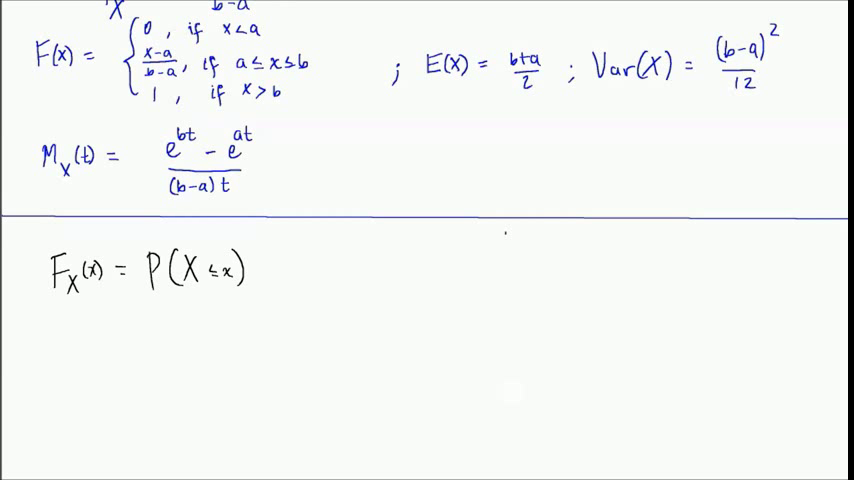 X b-a
F(x) = { 0 , if x<a
x-a/b-a , if a≤x≤b ; E(X) = b+a/2 ; Var(X) = (b-a)²/12
1 , if x>b
M_X(t) = e^bt - e^at / (b-a)t
F_X(x) = P(X ≤ x)